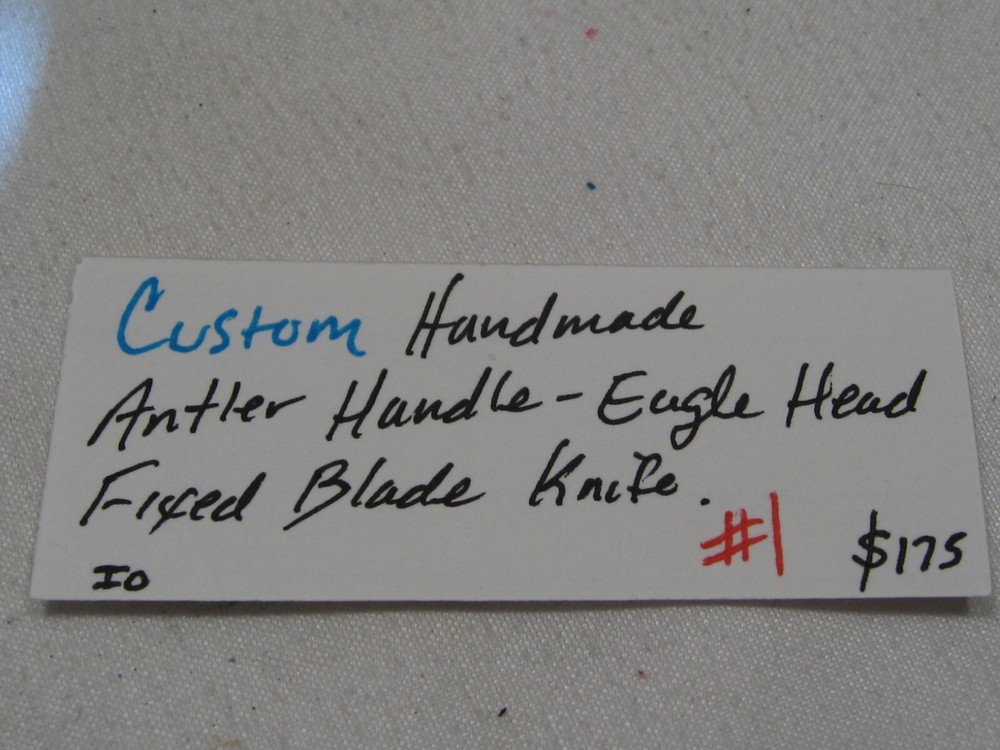 Custom Handmade
Antler Handle - Eagle Head
Fixed Blade Knife.
#1 $175
IO